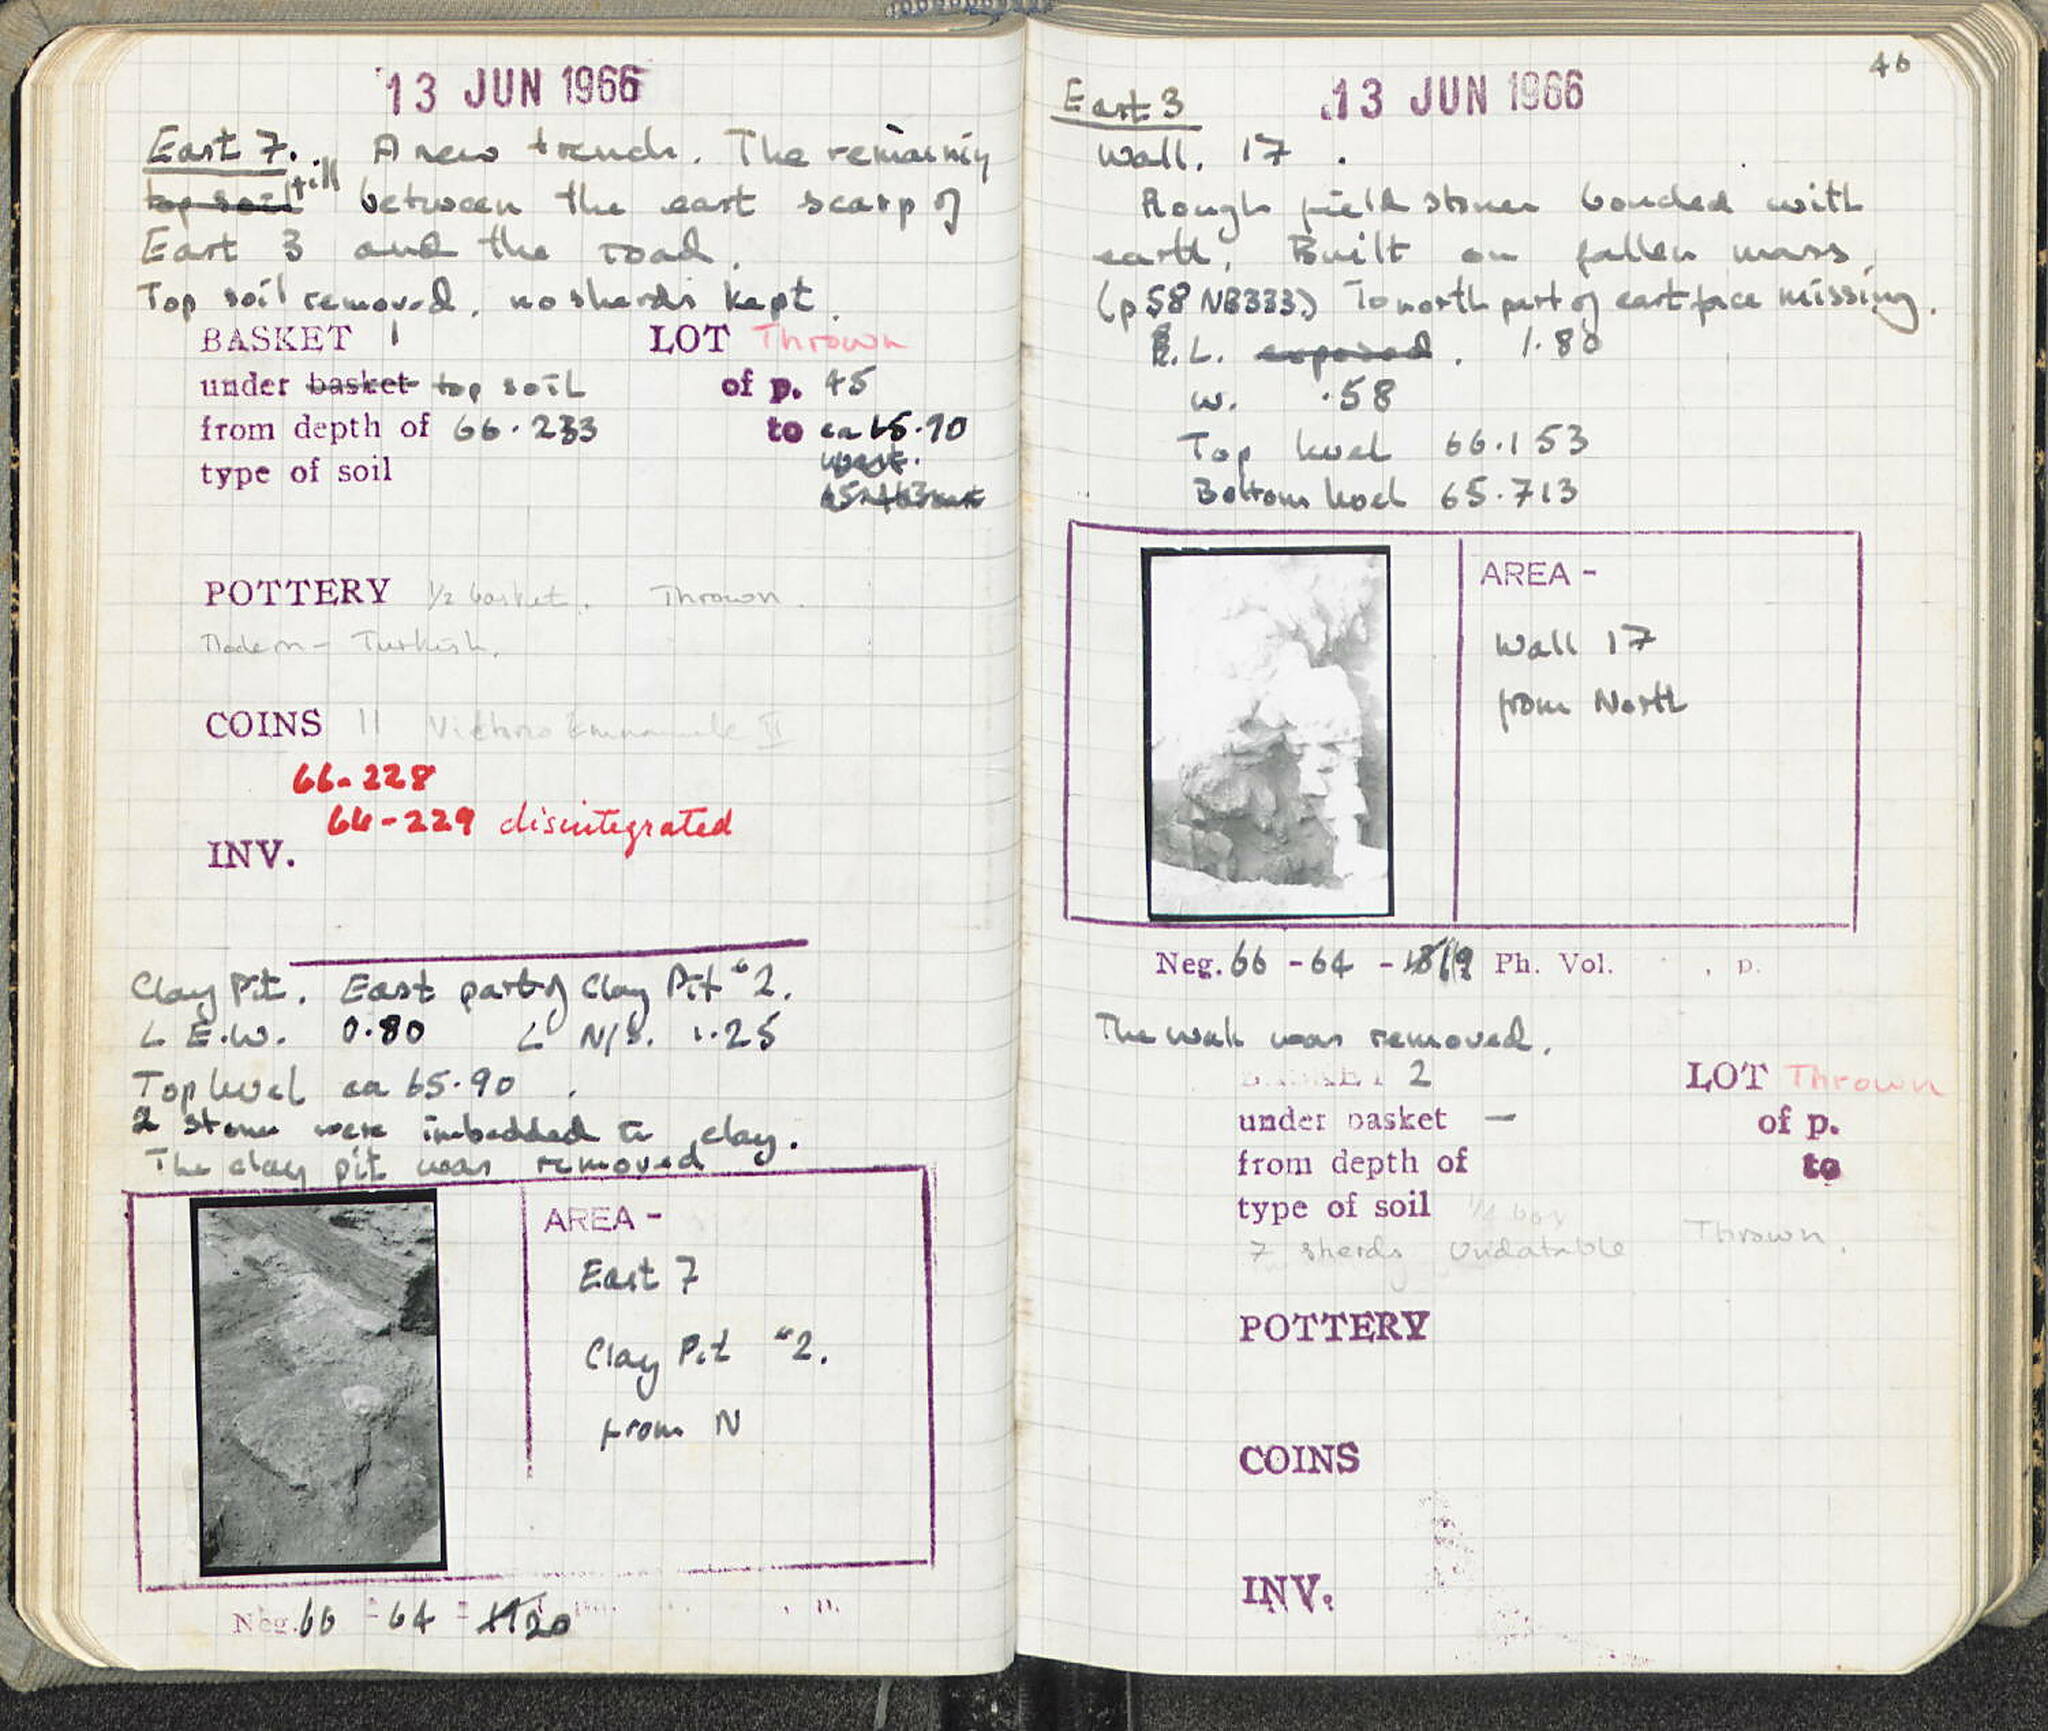 13 JUN 1966
East 7. A new trench. The remaining
top soil fill between the east scarp of
East 3 and the road.
Top soil removed, no sherds kept.
BASKET 1 LOT Thrown
under basket top soil of p. 45
from depth of 66.233 to ca 65.90
type of soil west.
POTTERY 1/2 basket. Thrown.
Modern - Turkish.
COINS 11 Victorio Emmanuele II
66-228
66-229 disintegrated
INV.
Clay Pit. East part of Clay Pit "2.
L E.W. 0.80 L N/S. 1.25
Top level ca 65.90.
2 stones were imbedded in clay.
The clay pit was removed
AREA -
East 7
Clay Pit "2.
from N
Neg. 66 - 64 - 20
46
East 3 13 JUN 1966
Wall. 17.
Rough field stones bonded with
earth. Built on fallen mass,
(p 58 NB333.) To north part of east face missing.
P. L. exposed. 1.80
w. .58
Top level 66.153
Bottom level 65.713
AREA -
Wall 17
from North
Neg. 66 - 64 - 19 Ph. Vol. , p.
The wall was removed.
BASKET 2 LOT Thrown
under basket — of p.
from depth of to
type of soil 1/4 box
7 sherds Undatable Thrown.
POTTERY
COINS
INV.